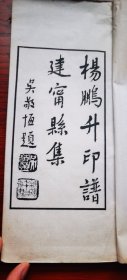 楊鵬升印譜
建甯縣集
吳敬恆題